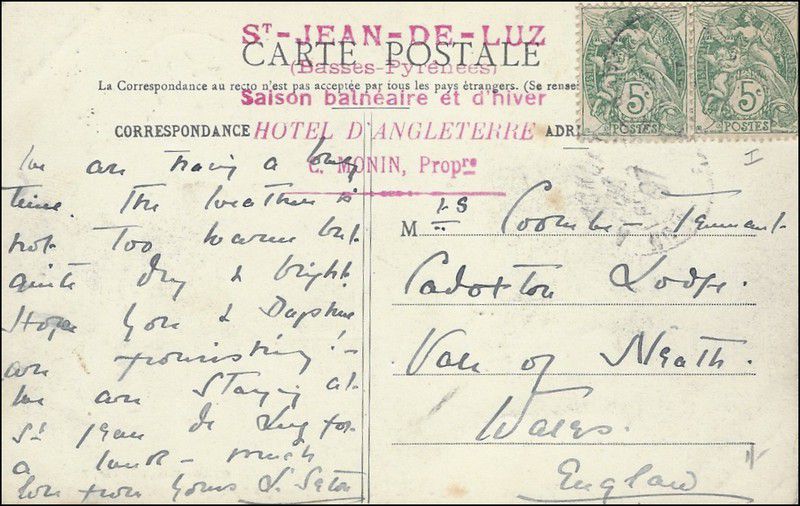 St-JEAN-DE-LUZ
CARTE POSTALE
(Basses-Pyrénées)
La Correspondance au recto n'est pas acceptée par tous les pays étrangers. (Se rensei
Saison balnéaire et d'hiver
CORRESPONDANCE
HOTEL D'ANGLETERRE
ADR
C. MONIN, Propre
5c
POSTES
5c
POSTES
We are having a lovely
time. The weather is
not too warm but
quite dry & bright.
Hope you & Daphne
are flourishing! -
We are staying at
St Jean de Luz for
a - much
love from yours
Mrs Coombe Tennant
Cadoxton Lodge.
Vale of Neath.
Wales.
England